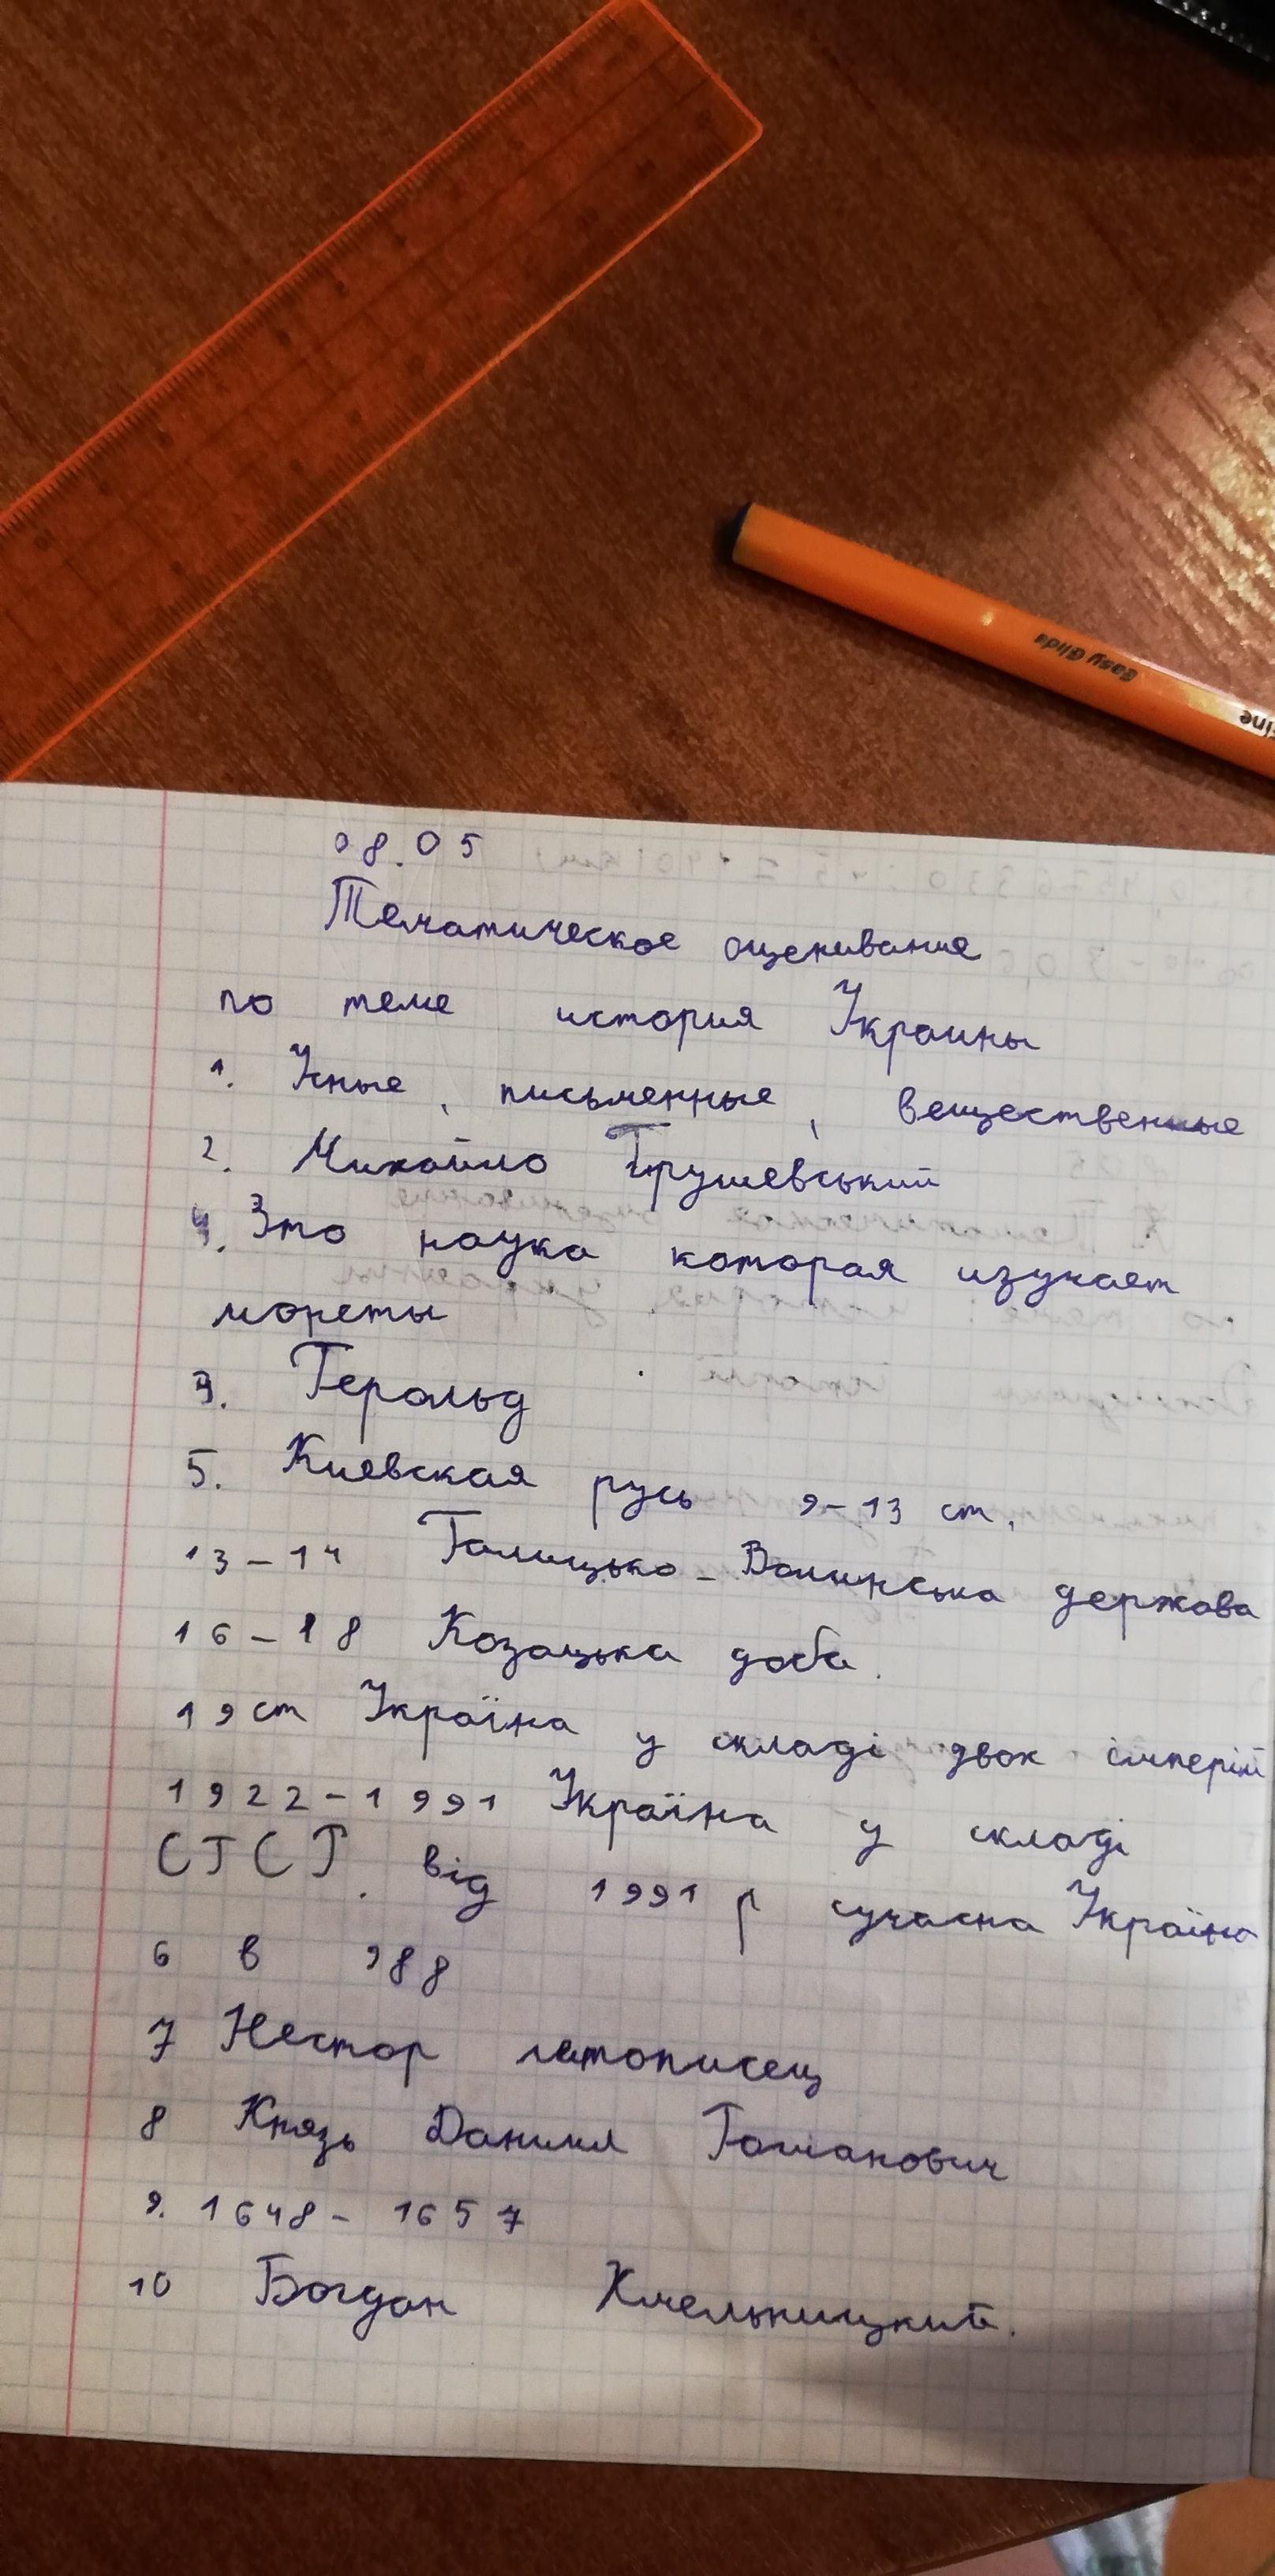 Easy Glide
fine
08.05
Тематическое оценивание
по теме история Украины
1. Усные, письменные, вещественные
2. Михайло Грушевський
4. Это наука которая изучает
монеты
3. Герольд
5. Киевская русь 9-13 ст.
13-14 Галицько-Волинська держава
16-18 Козацька доба.
19 ст Україна у складі двох імперій
1922-1991 Україна у складі
СГСГ. від 1991 р сучасна Україна
6 в 988
7 Нестор летописец
8 Князь Данил Романович
9. 1648- 1657
10 Богдан Хмельницкий.